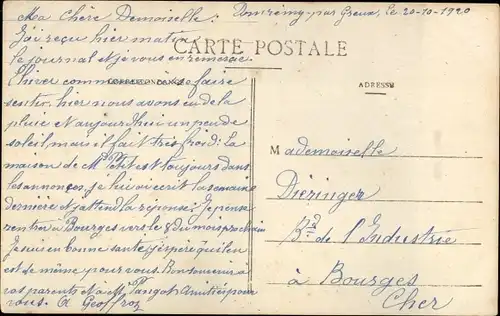 Ma Chère Demoiselle. Domrémy par Greux, le 20-10-1920
J'ai reçu hier matin
le journal et je vous en remercie.
CARTE POSTALE
L'hiver commence à se faire
CORRESPONDANCE
ADRESSE
sentir. hier nous avons eu de la
pluie et aujourd'hui un peu de
soleil, mais il fait très froid: la
maison de Mr Petit est toujours dans
les annonces, je lui ai écrit la semaine
dernière et j'attend la réponse; Je pense
rentrer à Bourges vers le 8 du mois prochain
Je suis en bonne santé, j'espère qu'il en
est de même pour vous. Bon souvenir à
vos parents et à Mr Amitiés pour
vous. A Geoffroy
Mademoiselle
Diezinger
Bd de l'Industrie
à Bourges
Cher